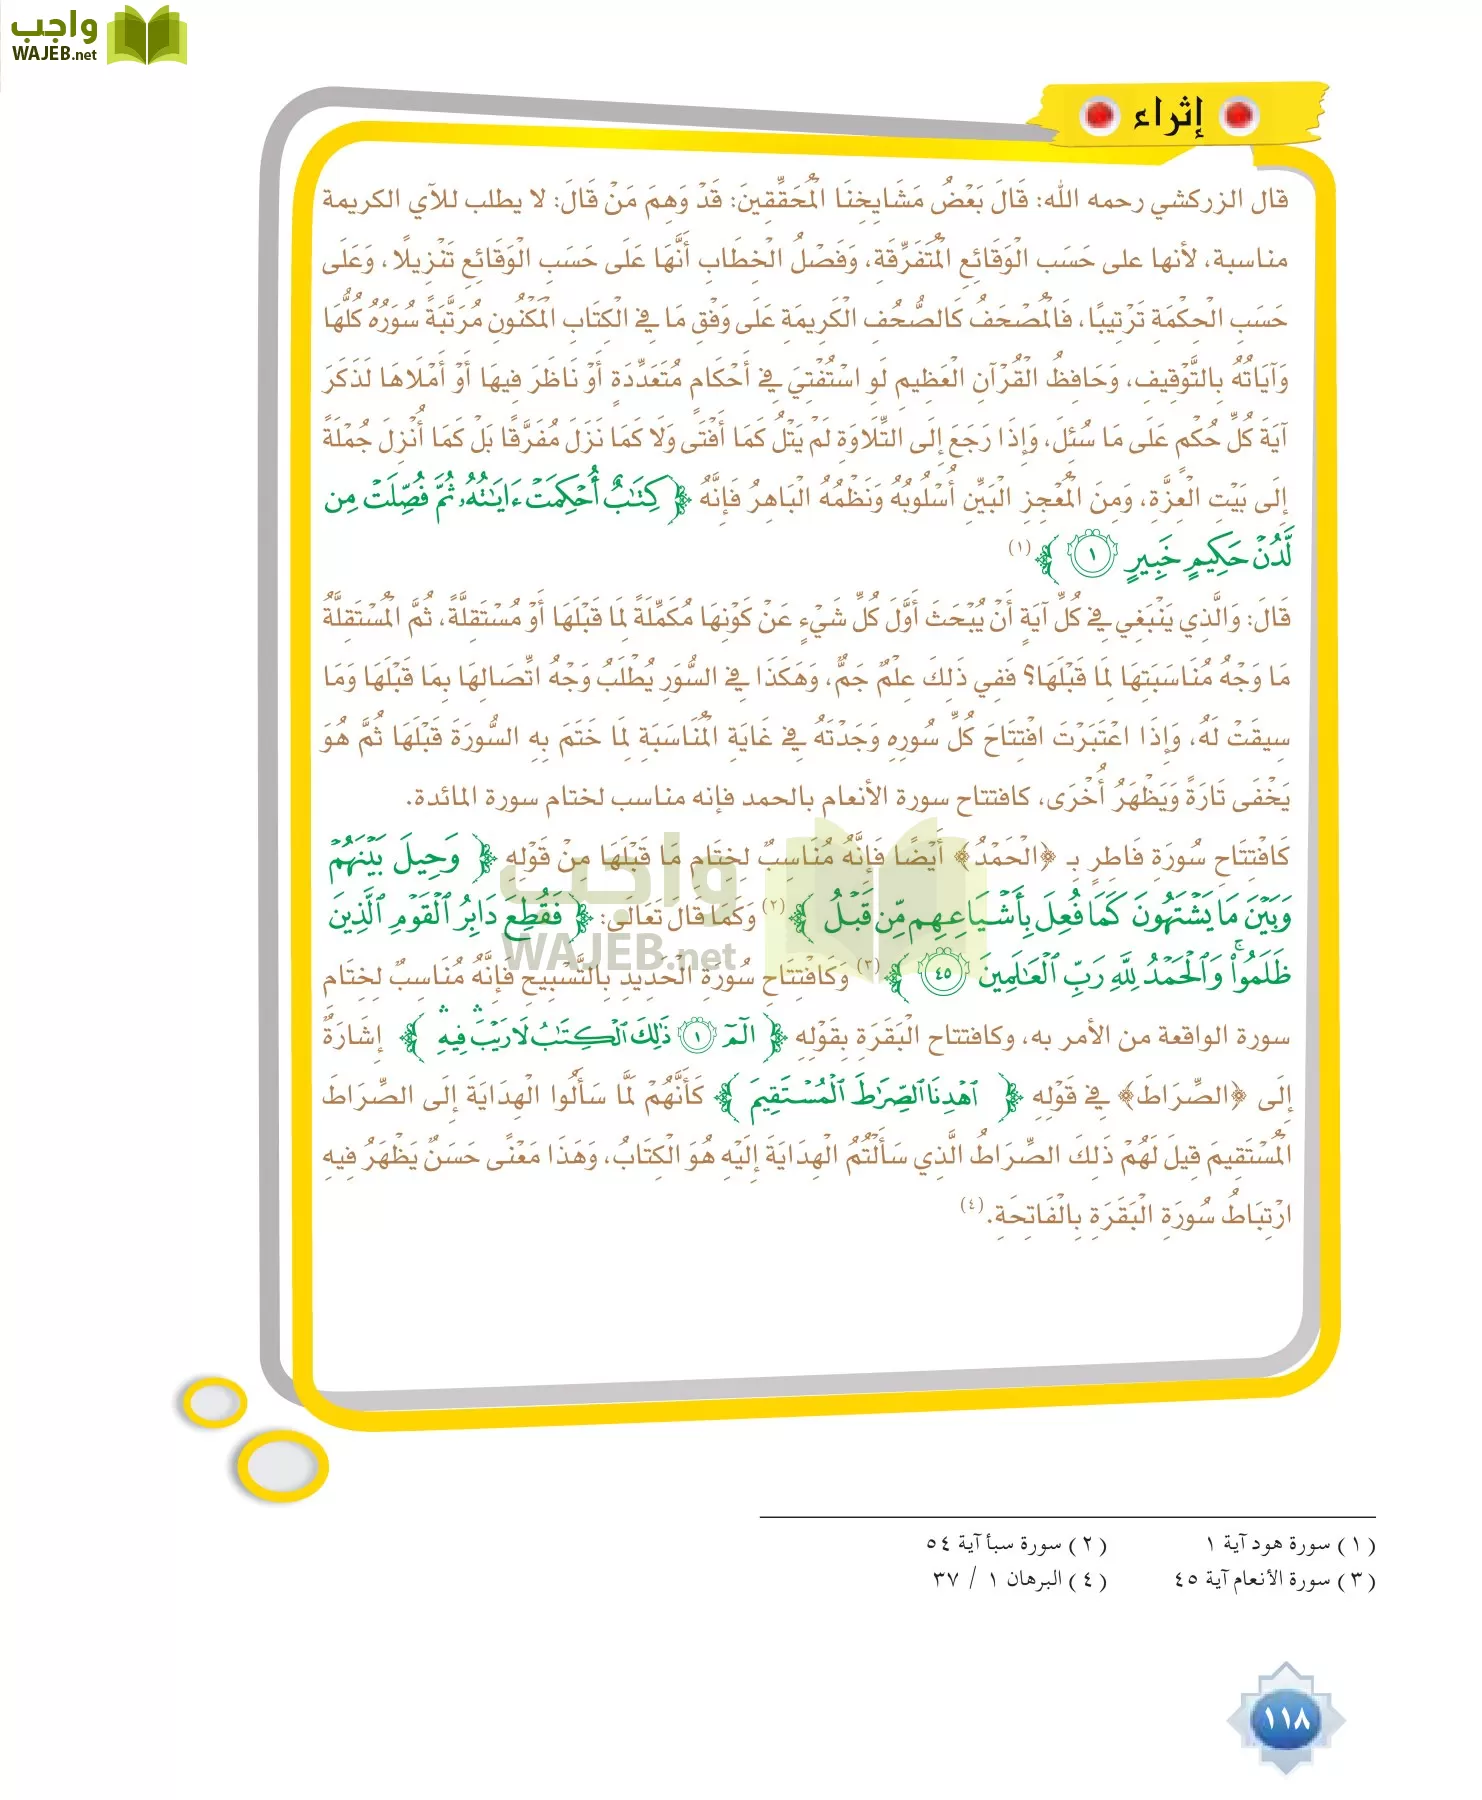 واجب
WAJEB.net
إثراء
قال الزركشي رحمه الله: قَالَ بَعْضُ مَشَايِخِنَا الْمُحَقِّقِينَ: قَدْ وَهِمَ مَنْ قَالَ: لا يطلب للآي الكريمة
مناسبة، لأنها على حَسَب الْوَقَائِعِ الْمُتَفَرِّقَة، وَفَصْلُ الْخِطَابِ أَنَّهَا عَلَى حَسَبِ الْوَقَائِعِ تَنْزِيلًا، وَعَلَى
حَسَبِ الْحِكْمَةِ تَرْتِيبًا، فَالْمُصْحَفُ كَالصُّحُفِ الْكَرِيمَةِ عَلَى وَفْقِ مَا فِي الْكِتَابِ الْمَكْنُونِ مُرَتَّبَةً سُوَرُهُ كُلُّهَا
وَآيَاتُهُ بِالتَّوْقِيفِ، وَحَافِظُ الْقُرْآنِ الْعَظِيمِ لَوِ اسْتُفْتِيَ فِي أَحْكَامٍ مُتَعَدِّدَةٍ أَوْ نَاظَرَ فِيهَا أَوْ أَمْلَاهَا لَذَكَرَ
آيَةَ كُلِّ حُكْمٍ عَلَى مَا سُئِلَ، وَإِذَا رَجَعَ إِلَى التِّلَاوَةِ لَمْ يَتْلُ كَمَا أَفْتَى وَلَا كَمَا نَزَلَ مُفَرَّقًا بَلْ كَمَا أُنْزِلَ جُمْلَةً
إِلَى بَيْتِ الْعِزَّةِ، وَمِنَ الْمُعْجِزِ الْبَيِّنِ أُسْلُوبُهُ وَنَظْمُهُ الْبَاهِرُ فَإِنَّهُ ﴿كِتَٰبٌ أُحْكِمَتْ ءَايَٰتُهُۥ ثُمَّ فُصِّلَتْ مِن
لَّدُنْ حَكِيمٍ خَبِيرٍ ١﴾ (١)
قَالَ: وَالَّذِي يَنْبَغِي فِي كُلِّ آيَةٍ أَنْ يُبْحَثَ أَوَّلَ كُلِّ شَيْءٍ عَنْ كَوْنِهَا مُكَمِّلَةً لِمَا قَبْلَهَا أَوْ مُسْتَقِلَّةً، ثُمَّ الْمُسْتَقِلَّةُ
مَا وَجْهُ مُنَاسَبَتِهَا لِمَا قَبْلَهَا؟ فَفِي ذَلِكَ عِلْمٌ جَمٌّ، وَهَكَذَا فِي السُّوَرِ يُطْلَبُ وَجْهُ اتِّصَالِهَا بِمَا قَبْلَهَا وَمَا
سِيقَتْ لَهُ، وَإِذَا اعْتَبَرْتَ افْتِتَاحَ كُلِّ سُورِهِ وَجَدْتَهُ فِي غَايَةِ الْمُنَاسَبَةِ لِمَا خَتَمَ بِهِ السُّورَةَ قَبْلَهَا ثُمَّ هُوَ
يَخْفَى تَارَةً وَيَظْهَرُ أُخْرَى، كافتتاح سورة الأنعام بالحمد فإنه مناسب لختام سورة المائدة.
كَافْتِتَاحِ سُورَةِ فَاطِرٍ بـ ﴿الْحَمْدُ﴾ أَيْضًا فَإِنَّهُ مُنَاسِبٌ لِخِتَامِ مَا قَبْلَهَا مِنْ قَوْلِهِ ﴿وَحِيلَ بَيْنَهُمْ
وَبَيْنَ مَا يَشْتَهُونَ كَمَا فُعِلَ بِأَشْيَاعِهِم مِّن قَبْلُ﴾ (٢) وَكَمَا قَالَ تَعَالَى: ﴿فَقُطِعَ دَابِرُ الْقَوْمِ الَّذِينَ
ظَلَمُوا۟ وَالْحَمْدُ لِلَّهِ رَبِّ الْعَالَمِينَ ٤٥﴾ (٣) وَكَافْتِتَاحِ سُورَةِ الْحَدِيدِ بِالتَّسْبِيحِ فَإِنَّهُ مُنَاسِبٌ لِخِتَامِ
سورة الواقعة من الأمر به، وكافتتاح الْبَقَرَةِ بِقَوْلِهِ ﴿الٓمٓ ١ ذَٰلِكَ الْكِتَٰبُ لَا رَيْبَ ۛ فِيهِ ۛ﴾ إِشَارَةٌ
إِلَى ﴿الصِّرَاطَ﴾ فِي قَوْلِهِ ﴿اهْدِنَا الصِّرَٰطَ الْمُسْتَقِيمَ﴾ كَأَنَّهُمْ لَمَّا سَأَلُوا الْهِدَايَةَ إِلَى الصِّرَاطَ
الْمُسْتَقِيمَ قِيلَ لَهُمْ ذَلِكَ الصِّرَاطُ الَّذِي سَأَلْتُمُ الْهِدَايَةَ إِلَيْهِ هُوَ الْكِتَابُ، وَهَذَا مَعْنًى حَسَنٌ يَظْهَرُ فِيهِ
ارْتِبَاطُ سُورَةِ الْبَقَرَةِ بِالْفَاتِحَةِ. (٤)
واجب
WAJEB.net
(١) سورة هود آية ١ (٢) سورة سبأ آية ٥٤
(٣) سورة الأنعام آية ٤٥ (٤) البرهان ١ / ٣٧
١١٨